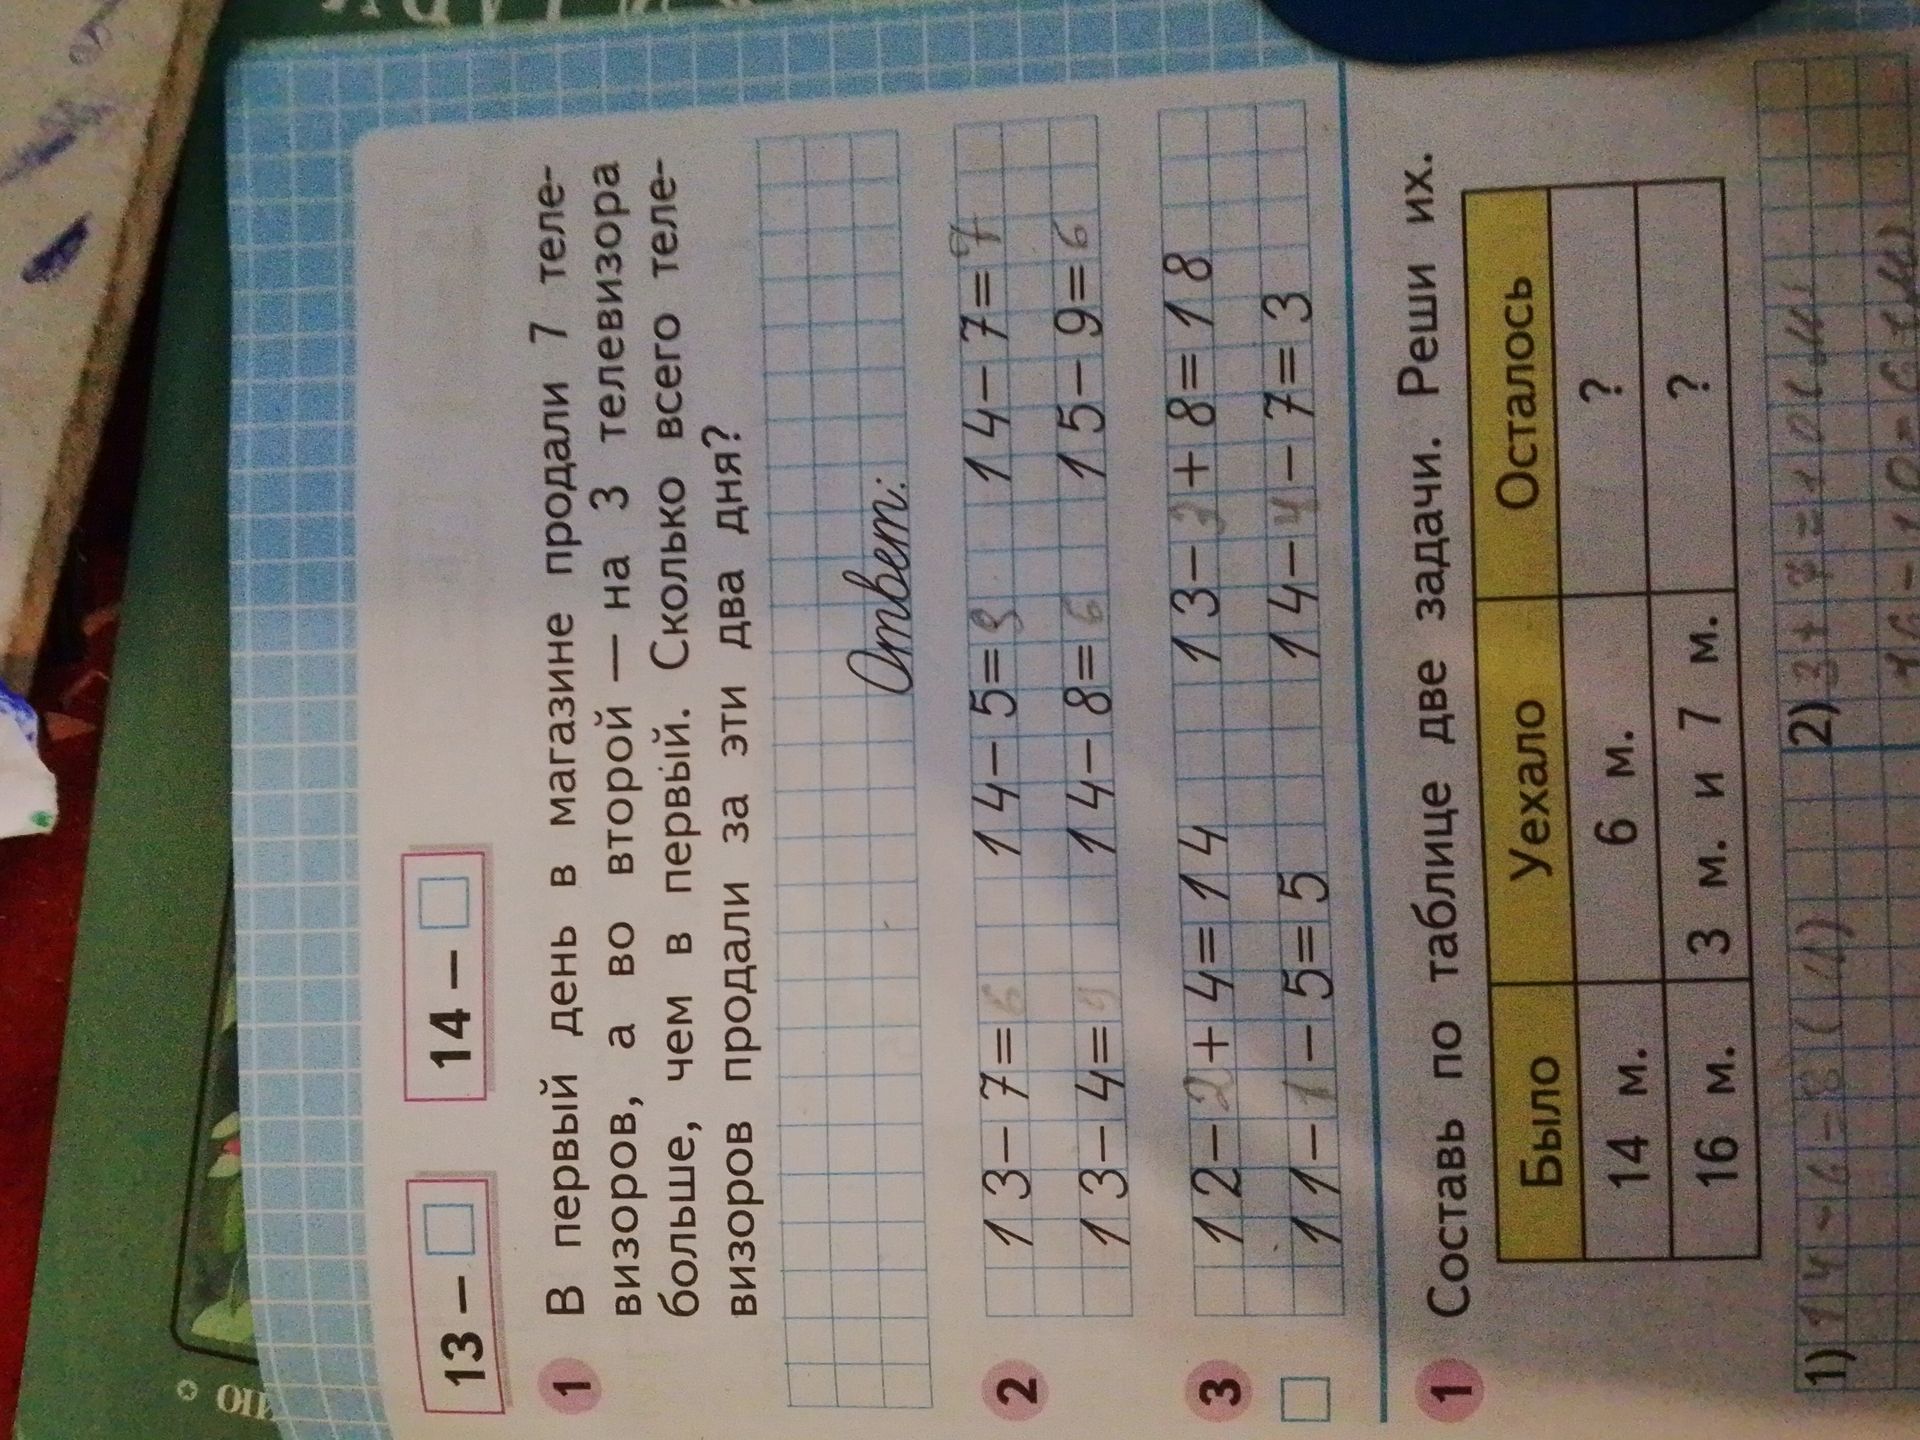 13 – □ 14 – □
1 В первый день в магазине продали 7 теле-
визоров, а во второй — на 3 телевизора
больше, чем в первый. Сколько всего теле-
визоров продали за эти два дня?
Ответ:
2 13-7=6 14-5=9 14-7=7
13-4=9 14-8=6 15-9=6
3 12-2+4=14 13-3+8=18
11-1-5=5 14-4-7=3
1 Составь по таблице две задачи. Реши их.
Было Уехало Осталось
14 м. 6 м. ?
16 м. 3 м. и 7 м. ?
1) 14-6=8 2) 3+7=10
16-10=6